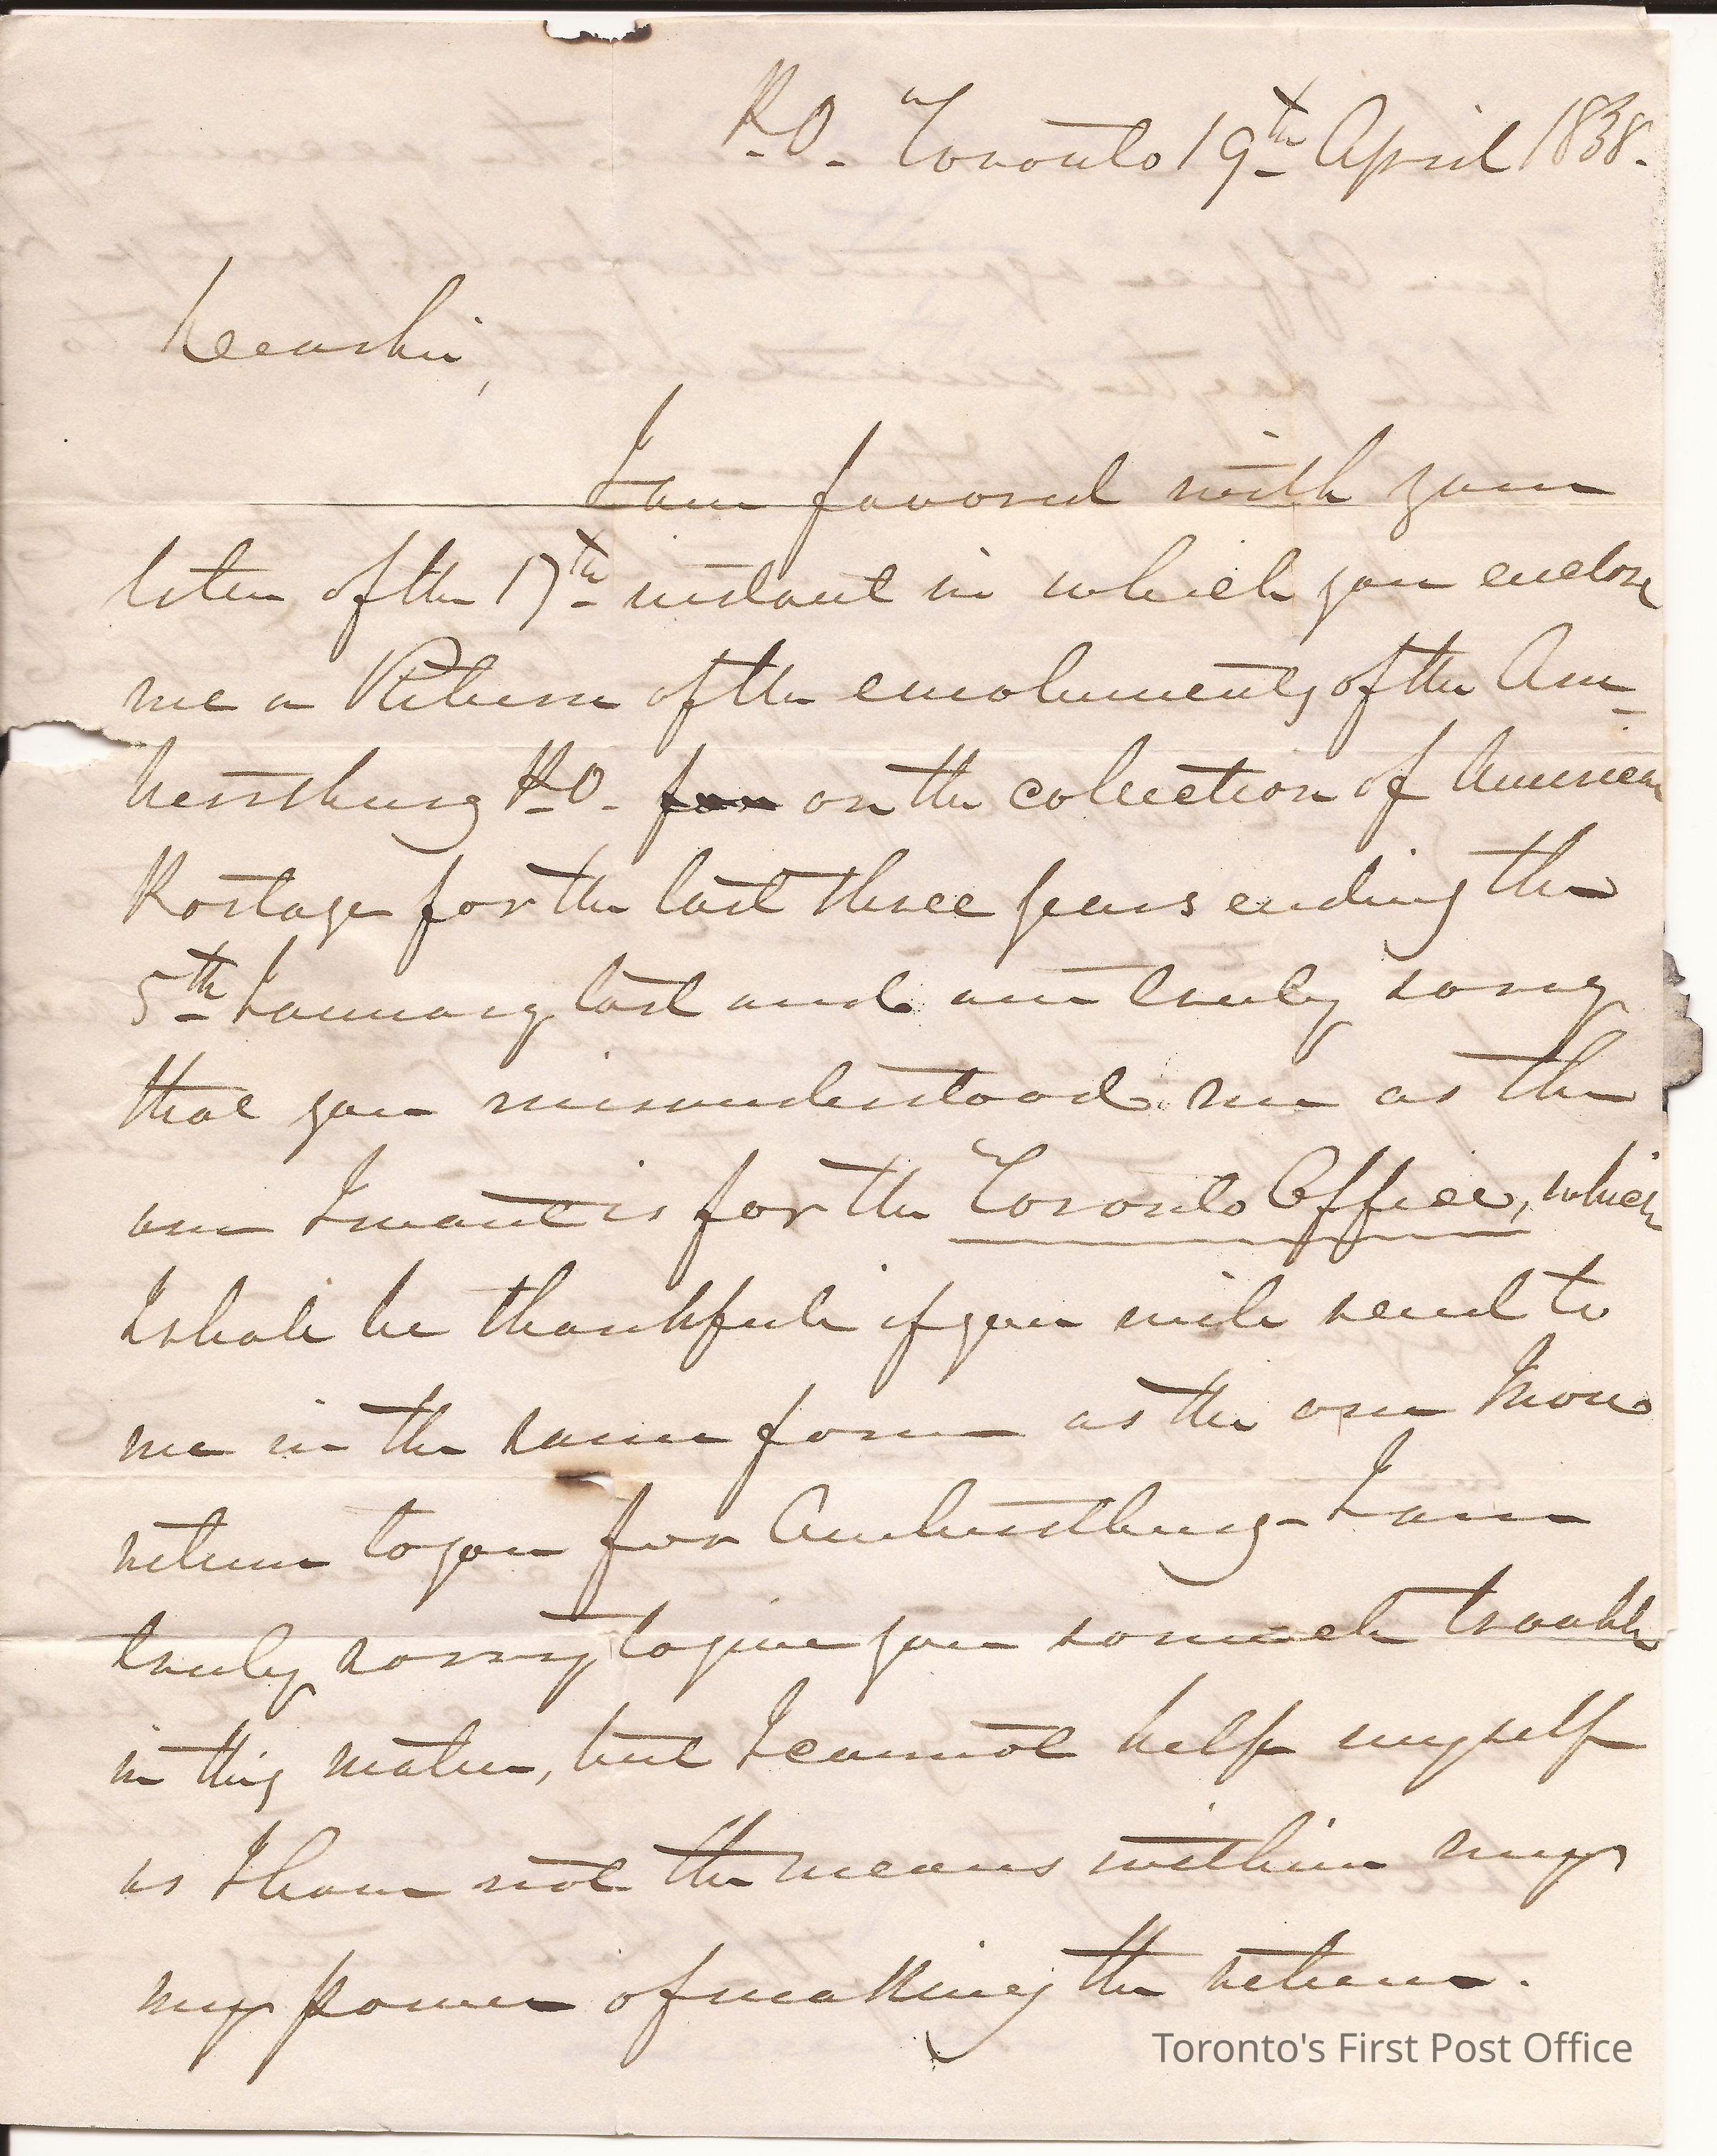 P.O. Toronto 19th April 1838.
Dear Sir,
I am favored with your
letter of the 17th instant in which you enclose
me a Return of the emoluments of the Am-
herstburg P.O. for on the collection of American
Postage for the last three years ending the
5th January last and am truly sorry
that you misunderstood me as the
one I want is for the Toronto Office, which
I shall be thankful if you will send to
me in the same form as the one I now
return to you for Amherstburg - I am
truly sorry to give you so much trouble
in this matter, but I cannot help myself
as I have not the means within my
my power of making the return.
Toronto's First Post Office